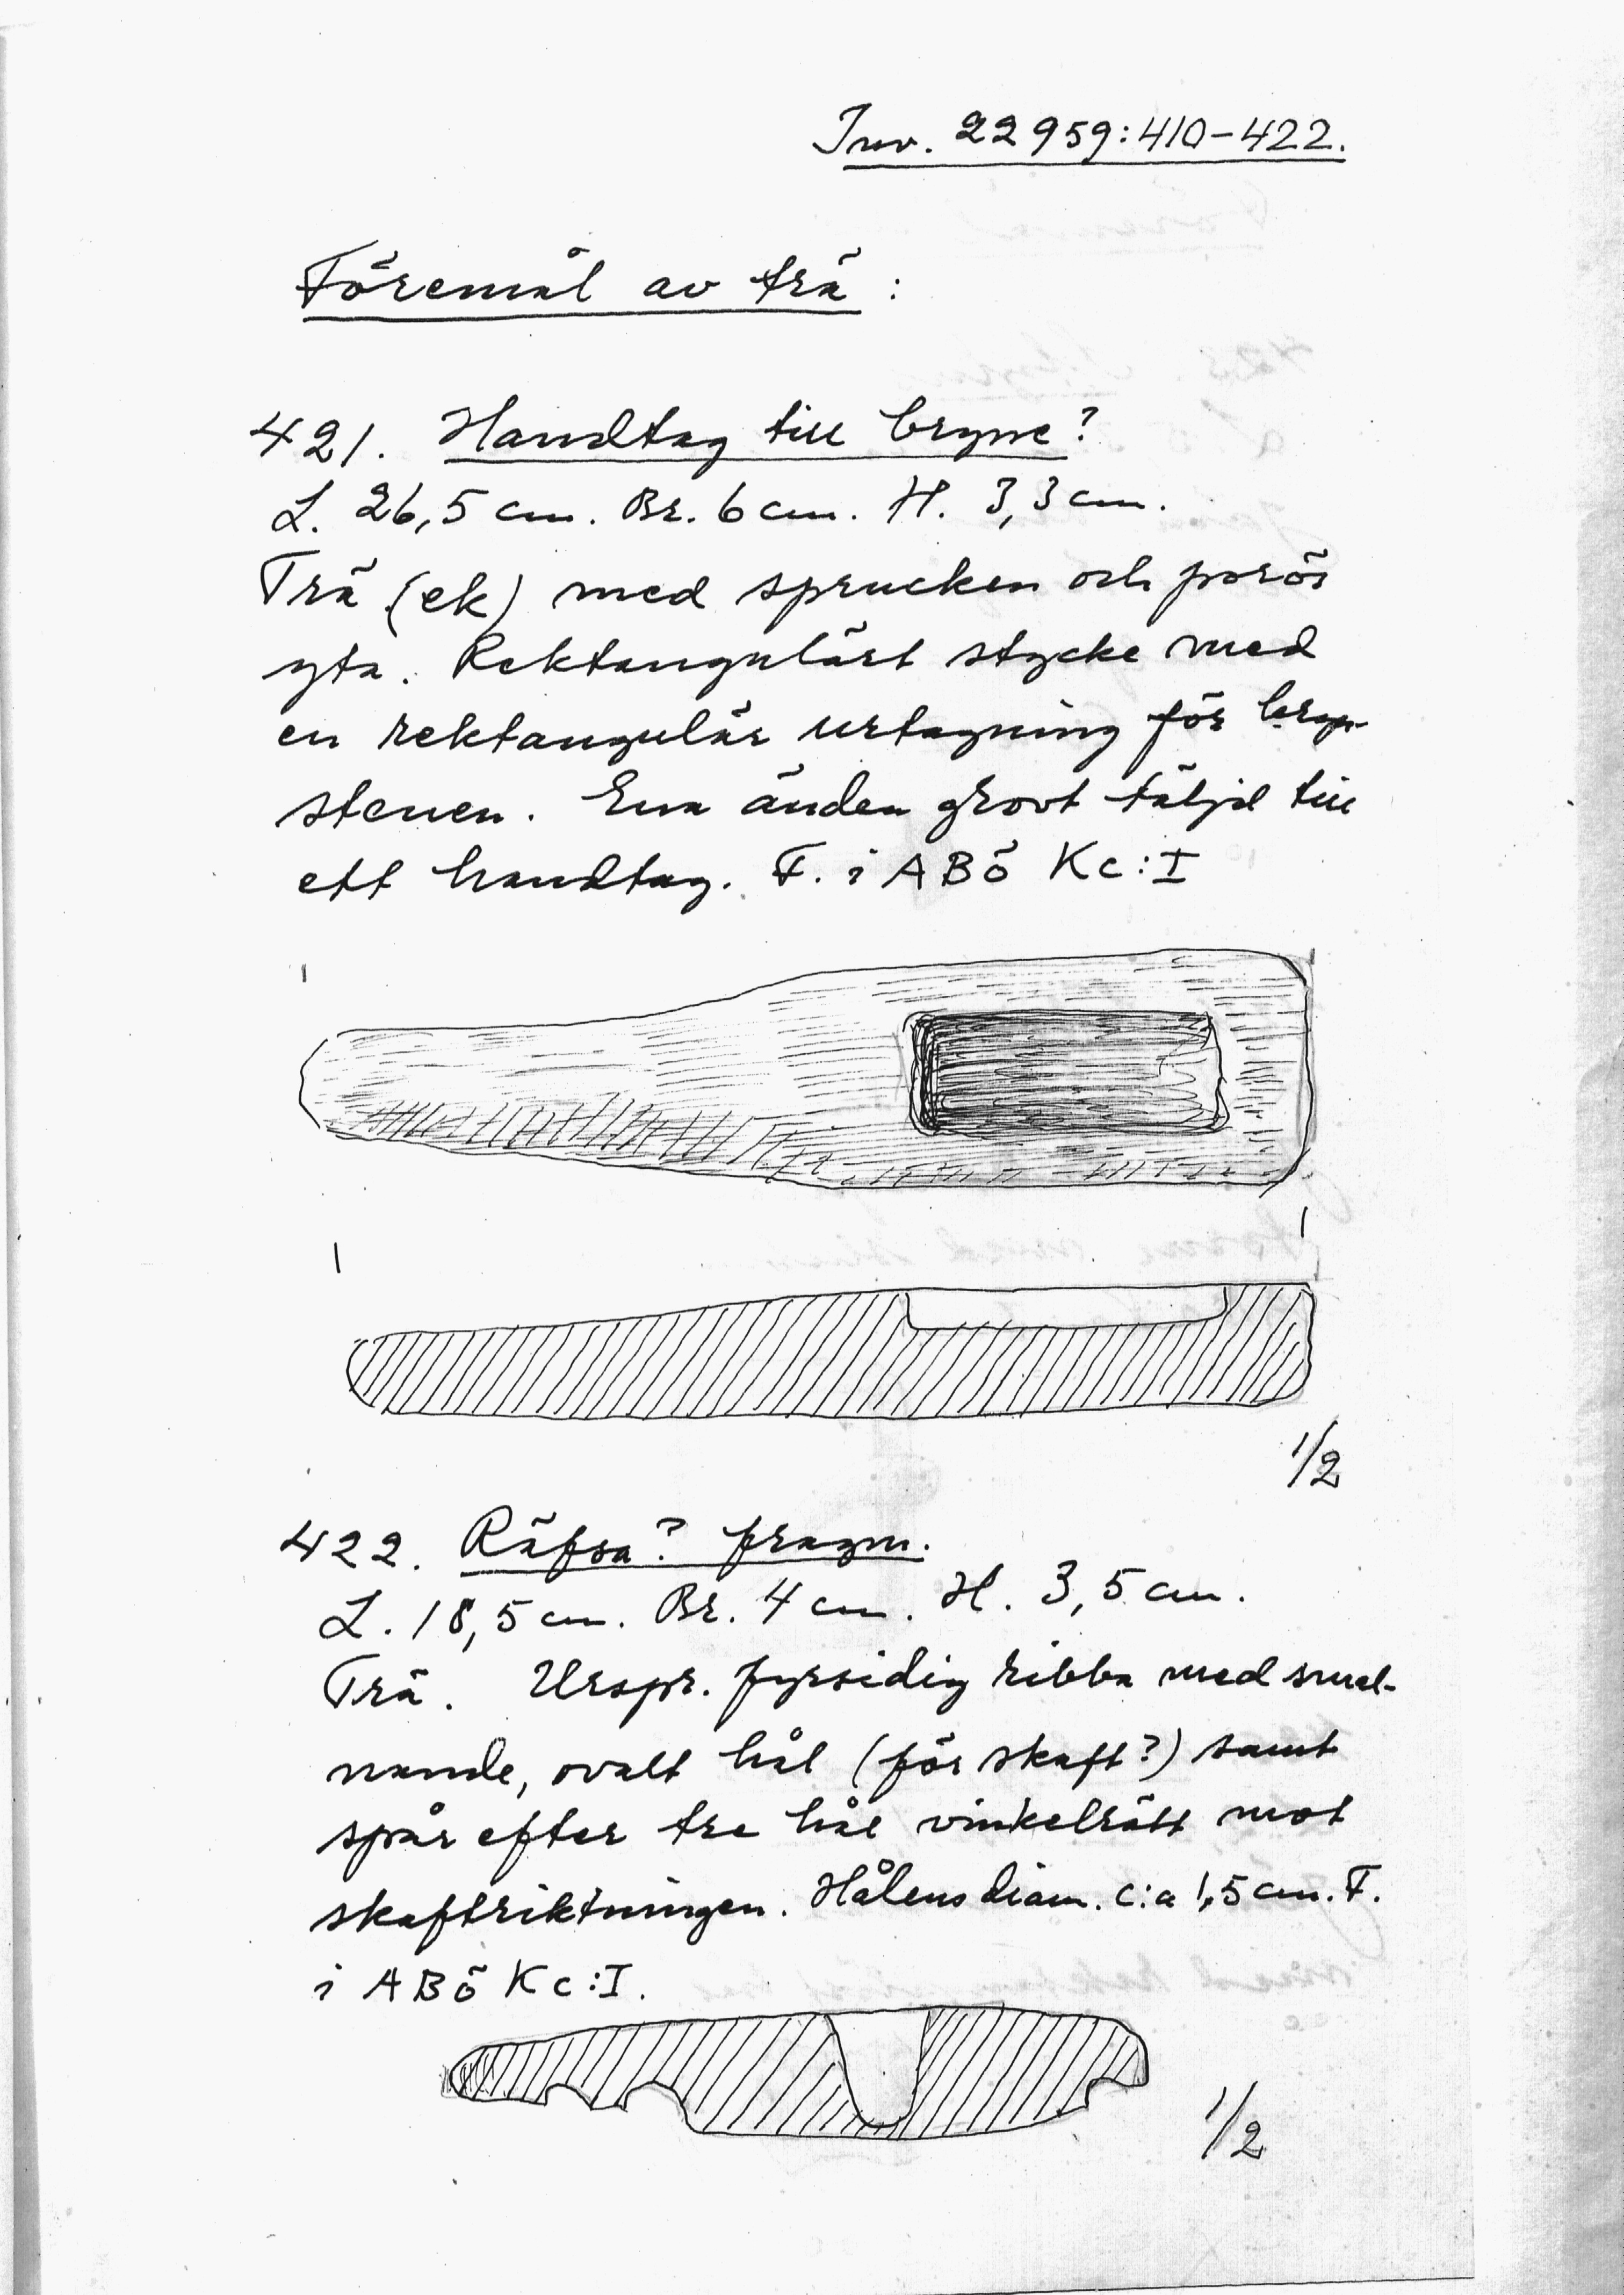 Inv. 22959:410-422.
Föremål av trä :
421. Handtag till bryne?
L. 26,5 cm. Br. 6 cm. H. 3,3 cm.
Trä (ek) med sprucken och porös
yta. Rektangulärt stycke med
en rektangulär urtagning för bryn-
stenen. Ena änden grovt täljd till
ett handtag. F. i ABÖ Kc:I
1/2
422. Räfsa? fragm.
L. 18,5 cm. Br. 4 cm. H. 3,5 cm.
Trä. Urspr. fyrsidig ribba med smal-
nande, ovalt hål (för skaft?) samt
spår efter tre hål vinkelrätt mot
skaftriktningen. Hålens diam. c:a 1,5 cm. F.
i ABÖ Kc:I.
1/2